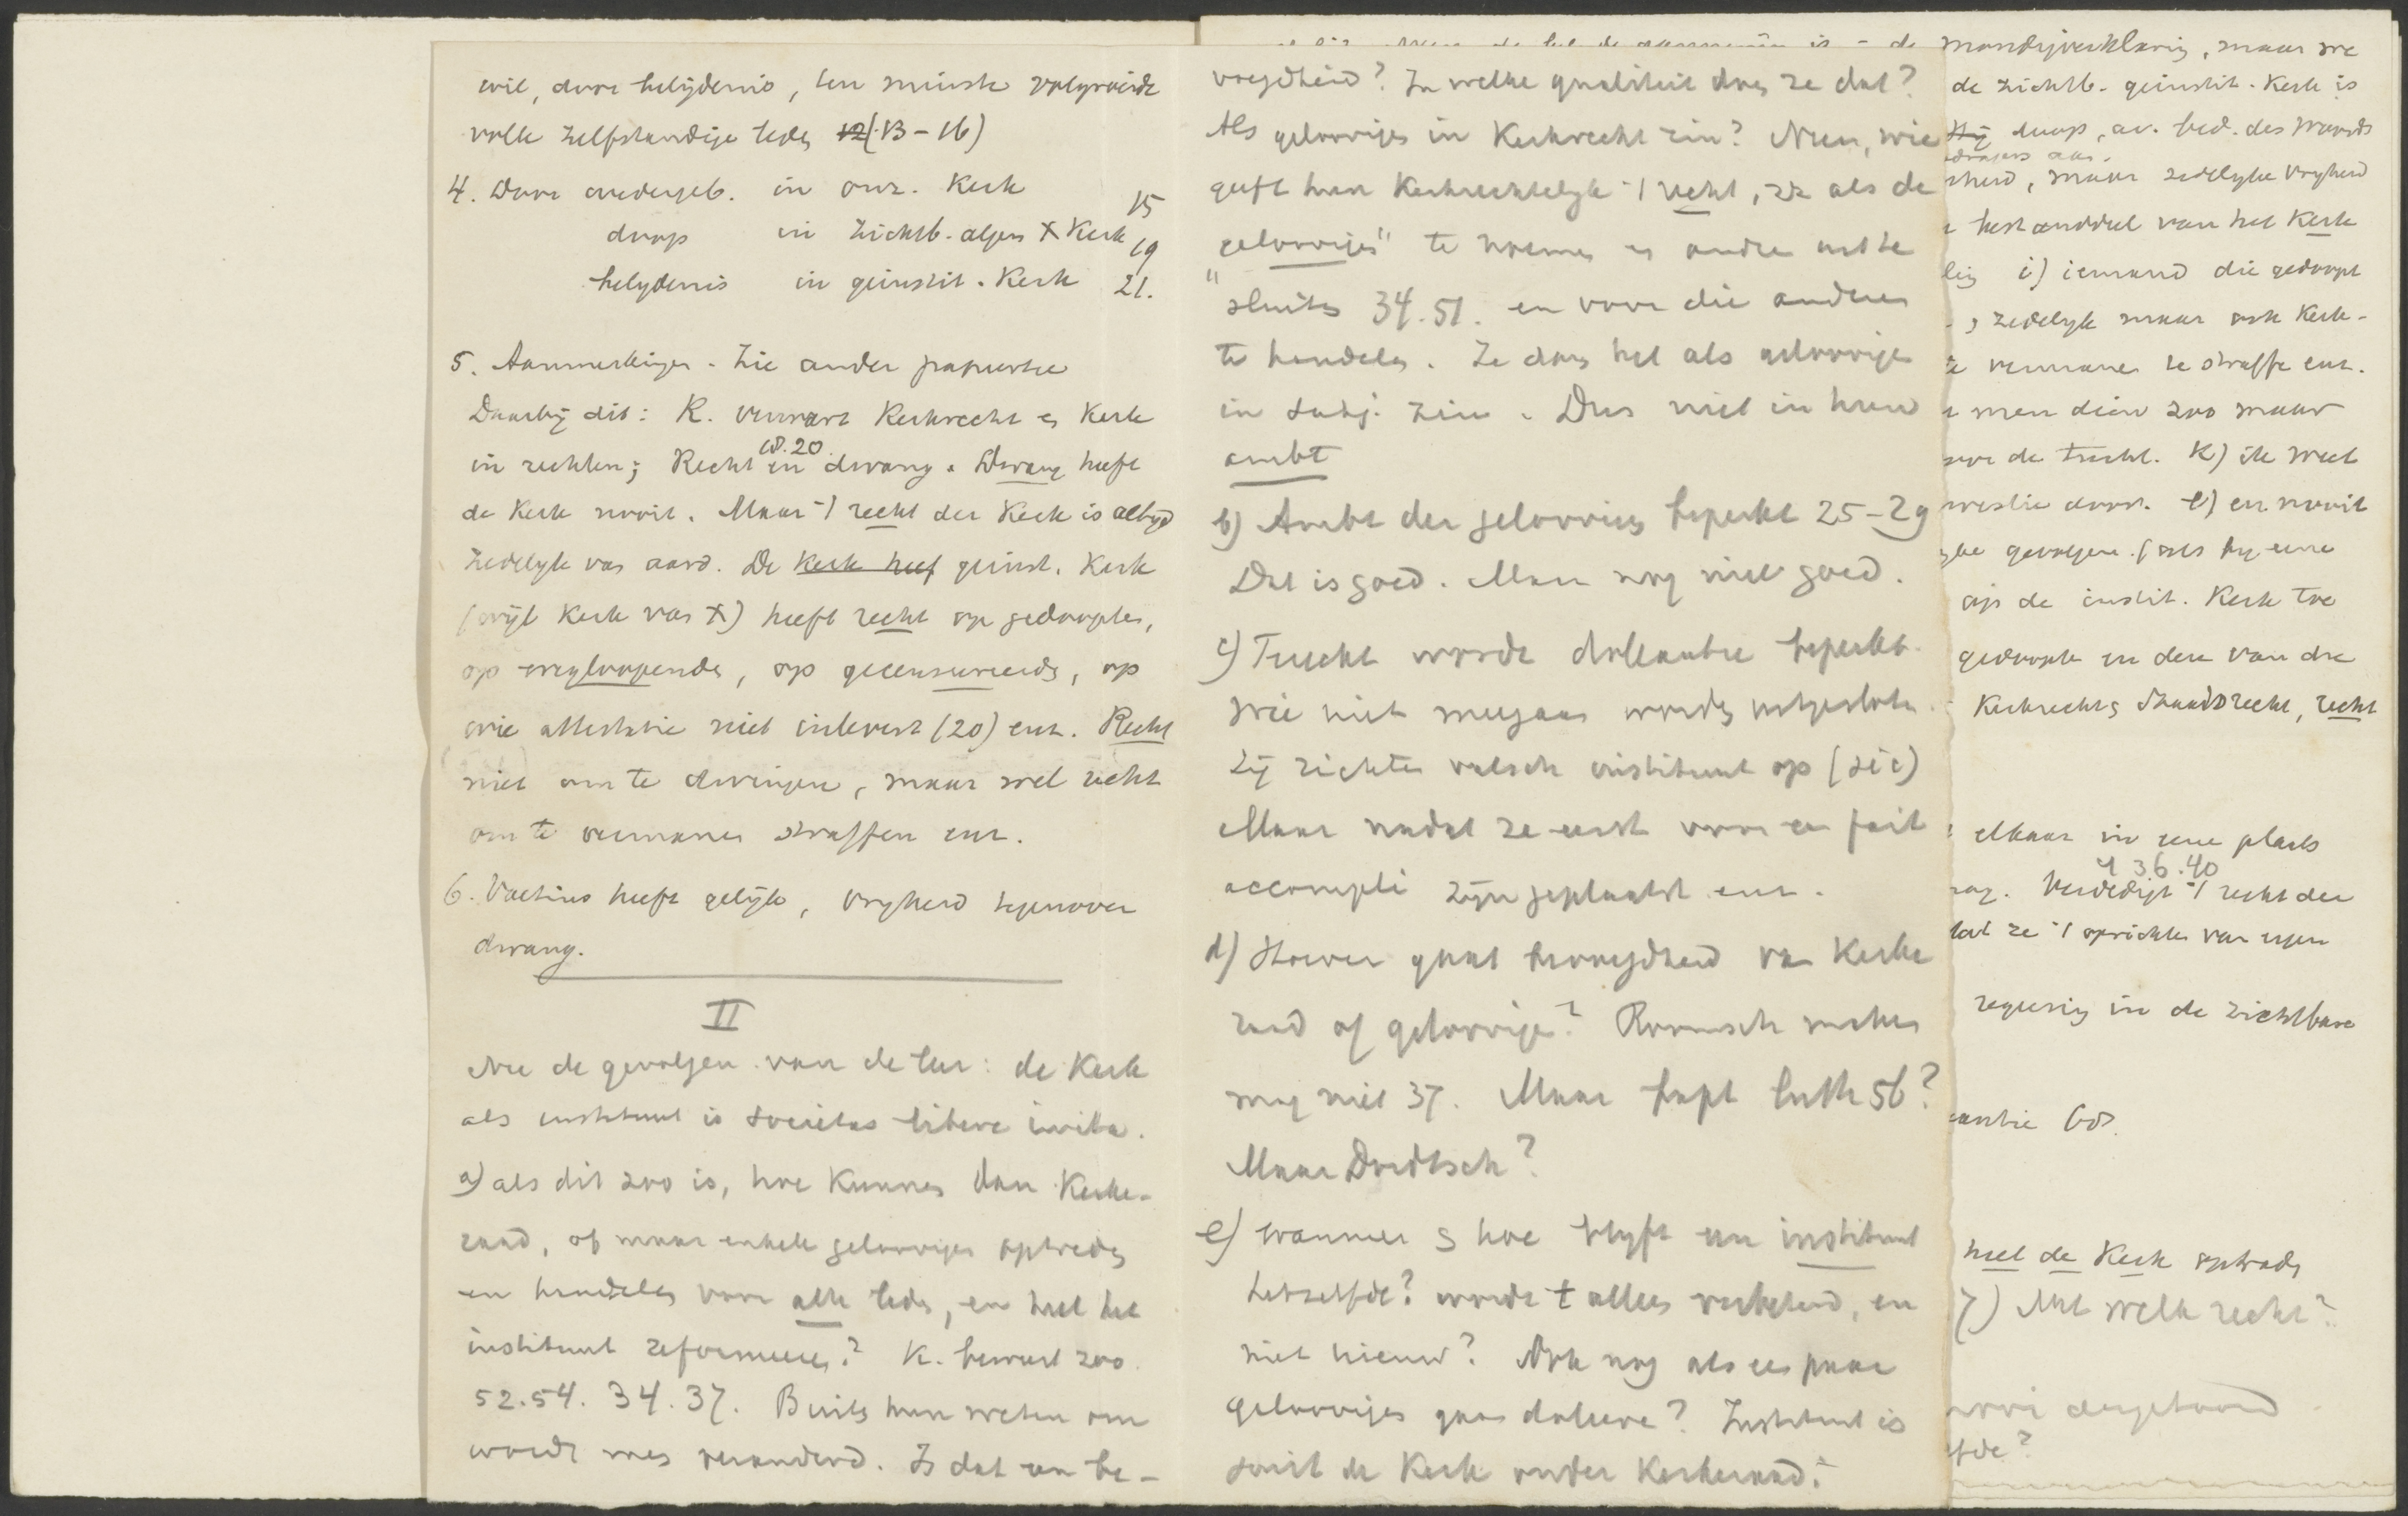 wil, door belijdenis, ten minste volgroeide
volle zelfstandige leden (13-16)
4. Door wedergeb. in onz. Kerk 15
doop in zichtb. algem X Kerk 19
belydenis in geinstit. Kerk 21.
5. Aanmerkingen. Zie ander papiertje
Daarbij dit: K. verwart Kerkrecht en Kerk
18.20
in rechten; Recht en dwang. Dwang heeft
de Kerk nooit. Maar 't recht der Kerk is altijd
zedelijk van aard. De Kerk heef geinst. Kerk
(wijl Kerk van X) heeft recht op gedoopten,
op wegloopende, op gecensureerde, op
wie attestatie niet inlevert (20) enz. Recht
niet om te dwingen, maar wel recht
om te vermanen straffen enz.
6. Voetius heeft gelijk, vryheid tegenover
dwang.
II
Nu de gevolgen van de leer: de Kerk
als instituut is societas libere inita.
a) als dit zoo is, hoe kunnen dan Kerke-
raad, of maar enkele geloovigen optreden
en handelen voor alle leden, en heel het
instituut reformeeren? K. beweert zoo
52.54. 34.37. Buiten hun weten om
wordt men veranderd. Is dat een be-
voegdheid? In welke qualiteit doen ze dat?
Als geloovigen in Kerkrecht zin? Neen, wie
geeft hun Kerkrechtelyk 't recht, zx als de
"geloovigen" te noemen en andre uit te
sluiten 34.51. en voor die anderen
te handelen. Ze doen het als geloovigen
in subj. zin. Dus niet in hun
ambt
b) Ambt der geloovigen beperkt 25-29
Dat is goed. Maar nog niet goed.
c) Tucht wordt doleantie beperkt.
Wie niet meegaan worden uitgesloten.
Zij richten valsch instituut op (sic)
Maar nadat ze eerst voor een fait
accompli zijn geplaatst enz.
d) Hoever gaat bevoegdheid van Kerke
raad of geloovige? Roomsch maken
mag niet 37. Maar bapt luth 56?
Maar Dordtsch?
e) Wanneer & hoe blyft een instituut
hetzelfde? wordt t alles verbeterd, en
niet nieuw? Ook nog als een paar
geloovigen gaan doleere? Instituut is
soms de Kerk onder Kerkeraad?
mondigverklaring, maar we
de zichtb. geinstit. Kerk is
doop, av. bed. des Woords
maar zedelyke vryheid
bestanddeel van het Kerk
i) iemand die gedoopt
zedelyk maar ook Kerk-
vermanen te straffe enz.
men dien zoo maar
de tucht. K) ik weet
l) en nooit
gevolgen. (als hy eene
op de instit. Kerk toe
gedoopte en den van die
Kerkrecht & Staatsrecht, recht
elkaar in eene plaats
4 36.40
Verdedigt 't recht der
dat ze 't oprichten van eigen
regeering in de zichtbare
68.
heel de Kerk optreden
7) Met welk recht?